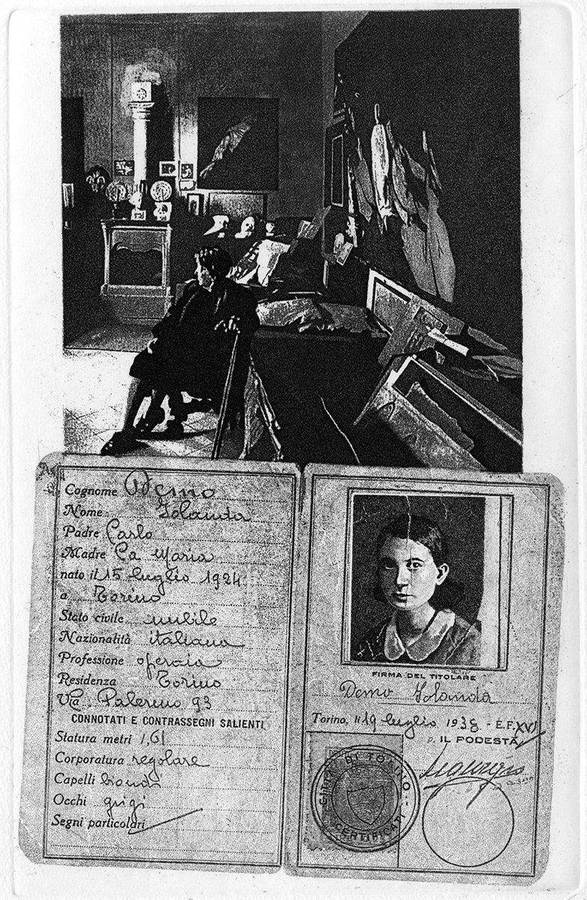 Cognome Demo
Nome Iolanda
Padre Carlo
Madre Ca Maria
nato il 15 luglio 1924
a Torino
Stato civile nubile
Nazionalità italiana
Professione operaia
Residenza Torino
Via Palermo 93
CONNOTATI E CONTRASSEGNI SALIENTI
Statura metri 1,61
Corporatura regolare
Capelli biondi
Occhi grigi
Segni particolari
FIRMA DEL TITOLARE
Demo Iolanda
Torino, li 19 luglio 1938 - E.F. XVI
p. IL PODESTÀ
CITTÀ DI TORINO
CERTIFICATI